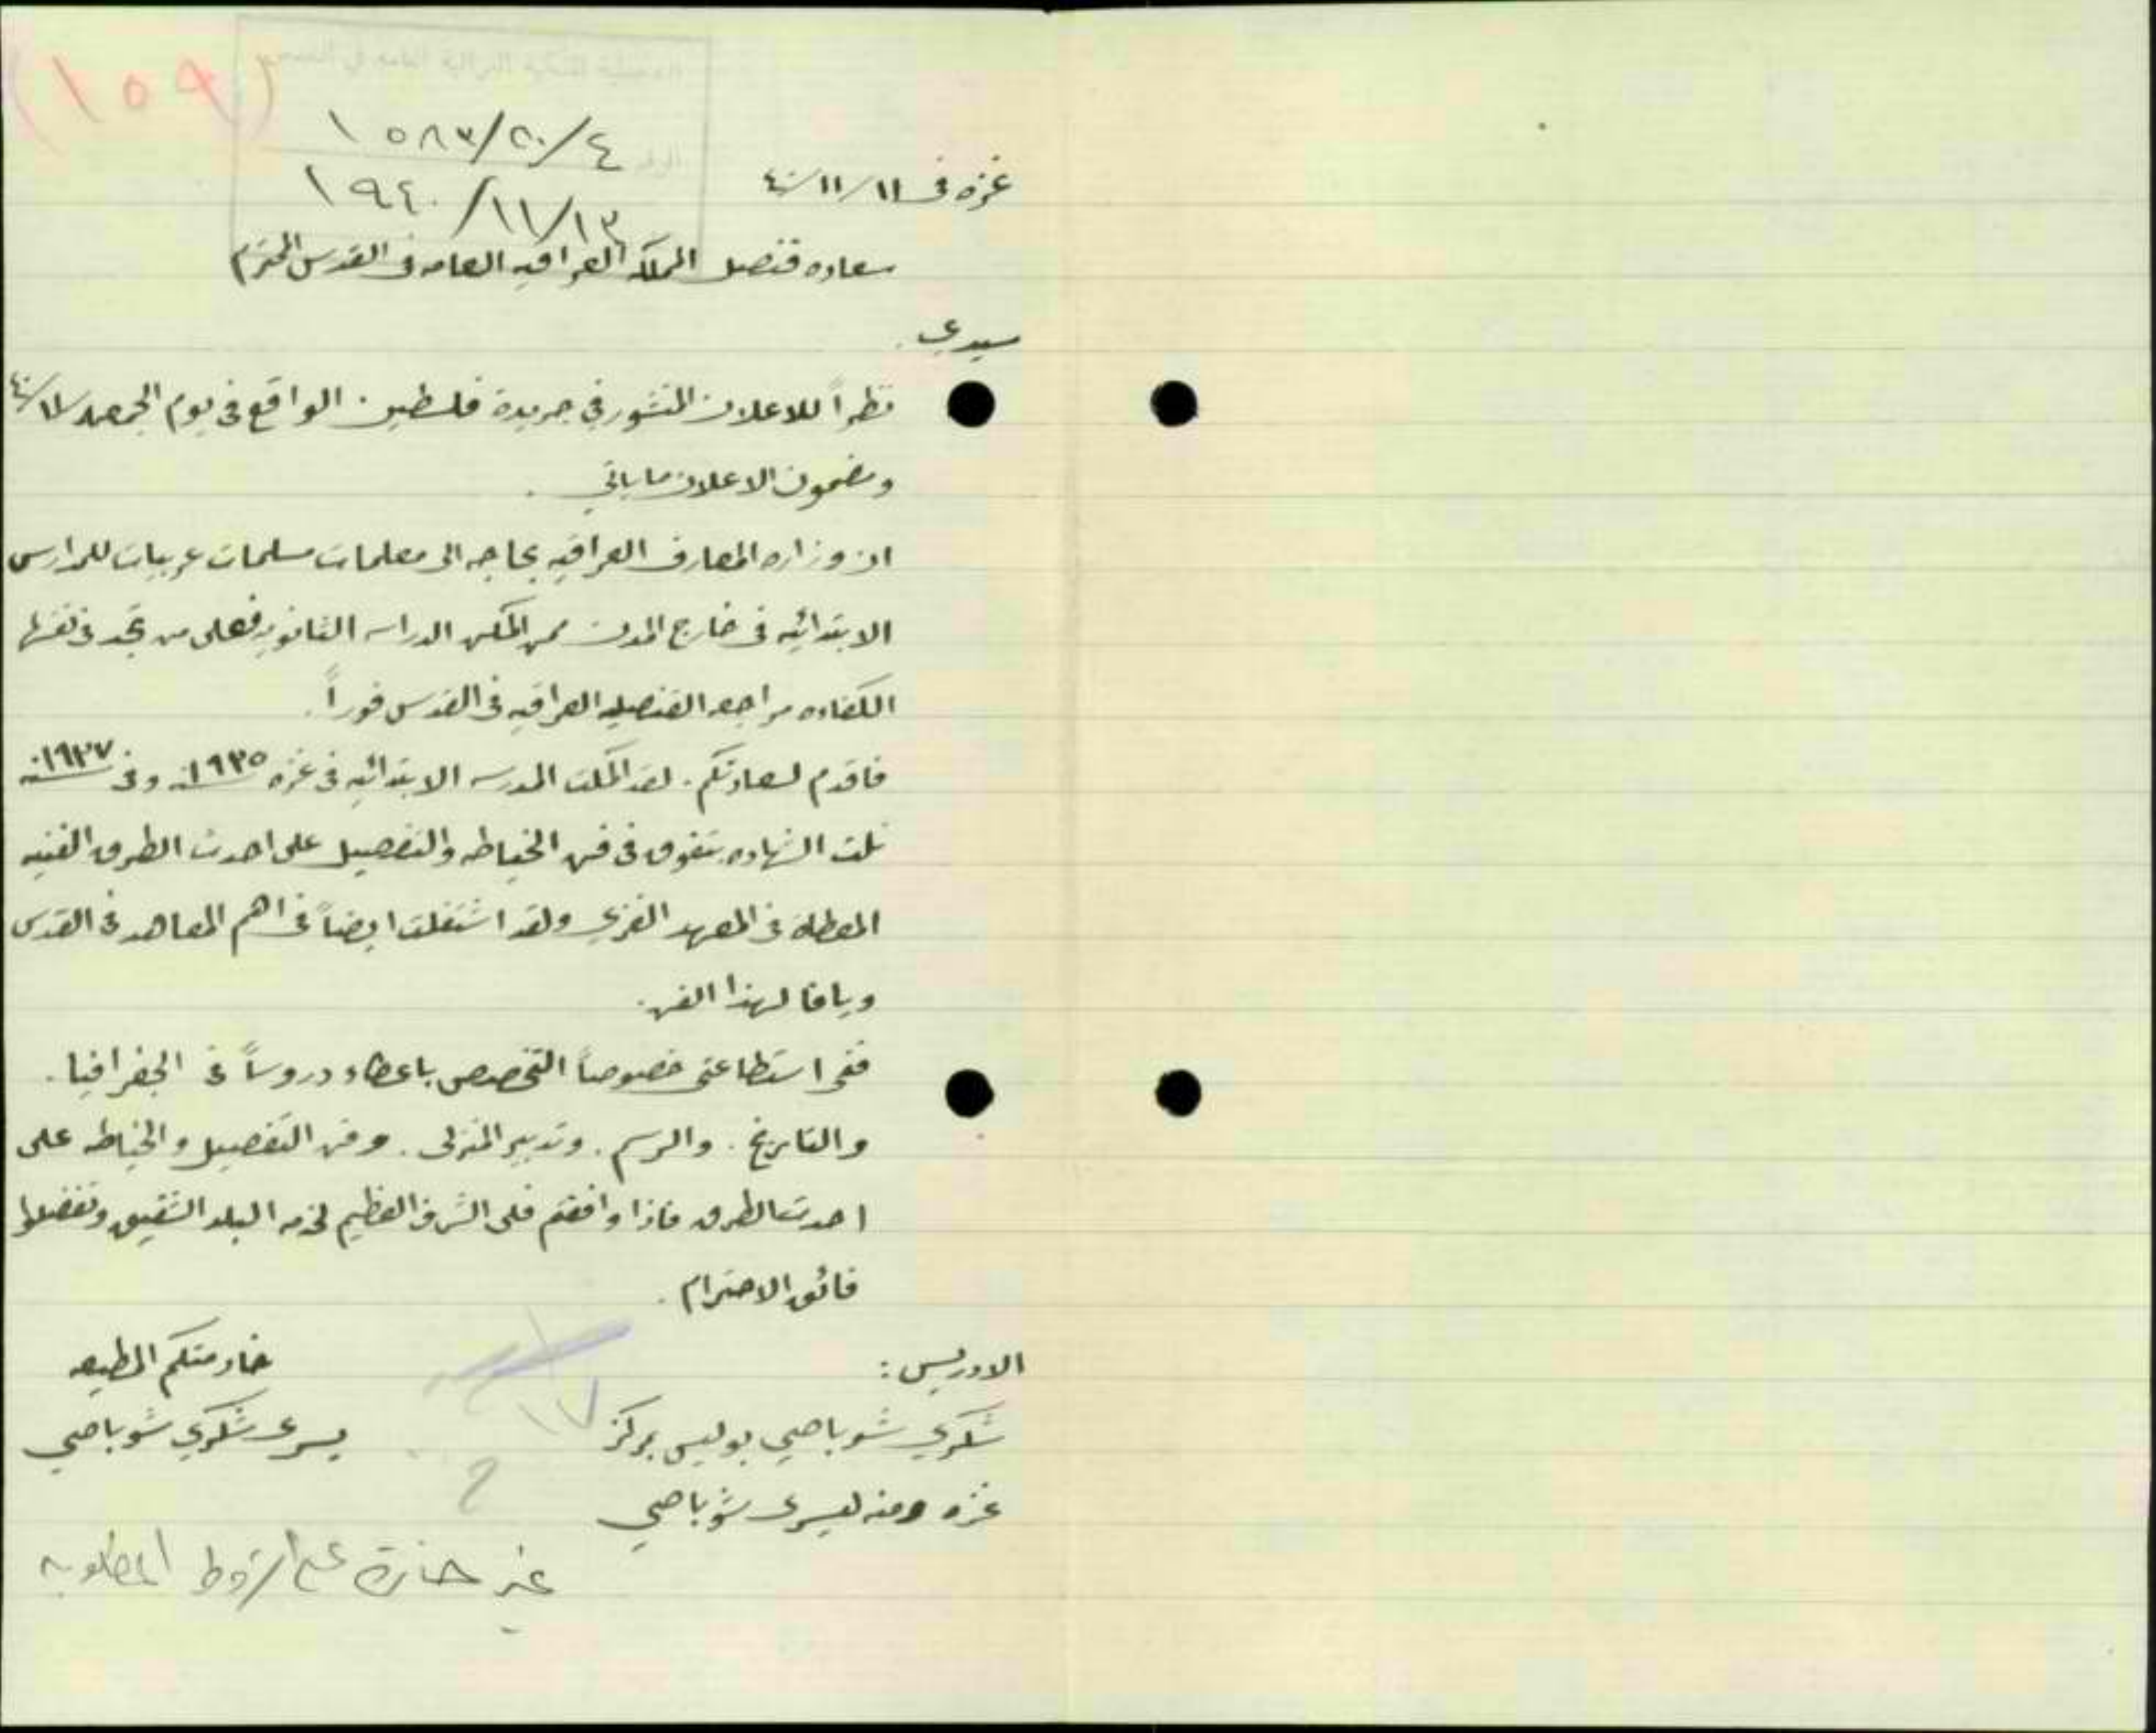 (١٥٩)
١٥٨٣/٢٠/٤
١٩٤٠/١١/١٣
غزه في ١١/١١/٤٠
سعاده قنصل المملكه العراقيه العامه في القدس المحترم
سيدي
نظراً للاعلان المنشور في جريدة فلسطين الواقع في يوم الجمعه
ومضمون الاعلان ما ياتي .
ان وزاره المعارف العراقيه بحاجه الى معلمات مسلمات عربيات للمدارس
الابتدائيه في خارج المدن ممن اكملن الدراسه الثانويه فعلى من تجد في نفسها
الكفاءه مراجعه القنصليه العراقيه في القدس فوراً .
فاقدم لسعادتكم . لقد اكملت المدرسه الابتدائيه في غزه سنه ١٩٣٥ وفي سنه ١٩٣٧
نلت الشهاده بتفوق في فن الخياطه والتفصيل على احدث الطرق الفنيه
المعطاه في المعهد الغزي ولقد اشتغلت ايضاً في اهم المعاهد في القدس
ويافا لهذا الفن .
ففي استطاعتي خصوصاً التخصص باعطاء دروساً في الجغرافيا .
والتاريخ . والرسم . وتدبير المنزلى . وفن التفصيل والخياطه على
احدث الطرق فاذا وافقتم فلى الشرف العظيم لخدمه البلد الشقيق وتفضلوا
فائق الاحترام .
خادمتكم المطيعه
يسرى شكري شوباصي
الادريس :
شكري شوباصي بوليس بمركز
غزه ومنه ليسرى شوباصي
١٧
غير حائزة على الشروط المطلوبه